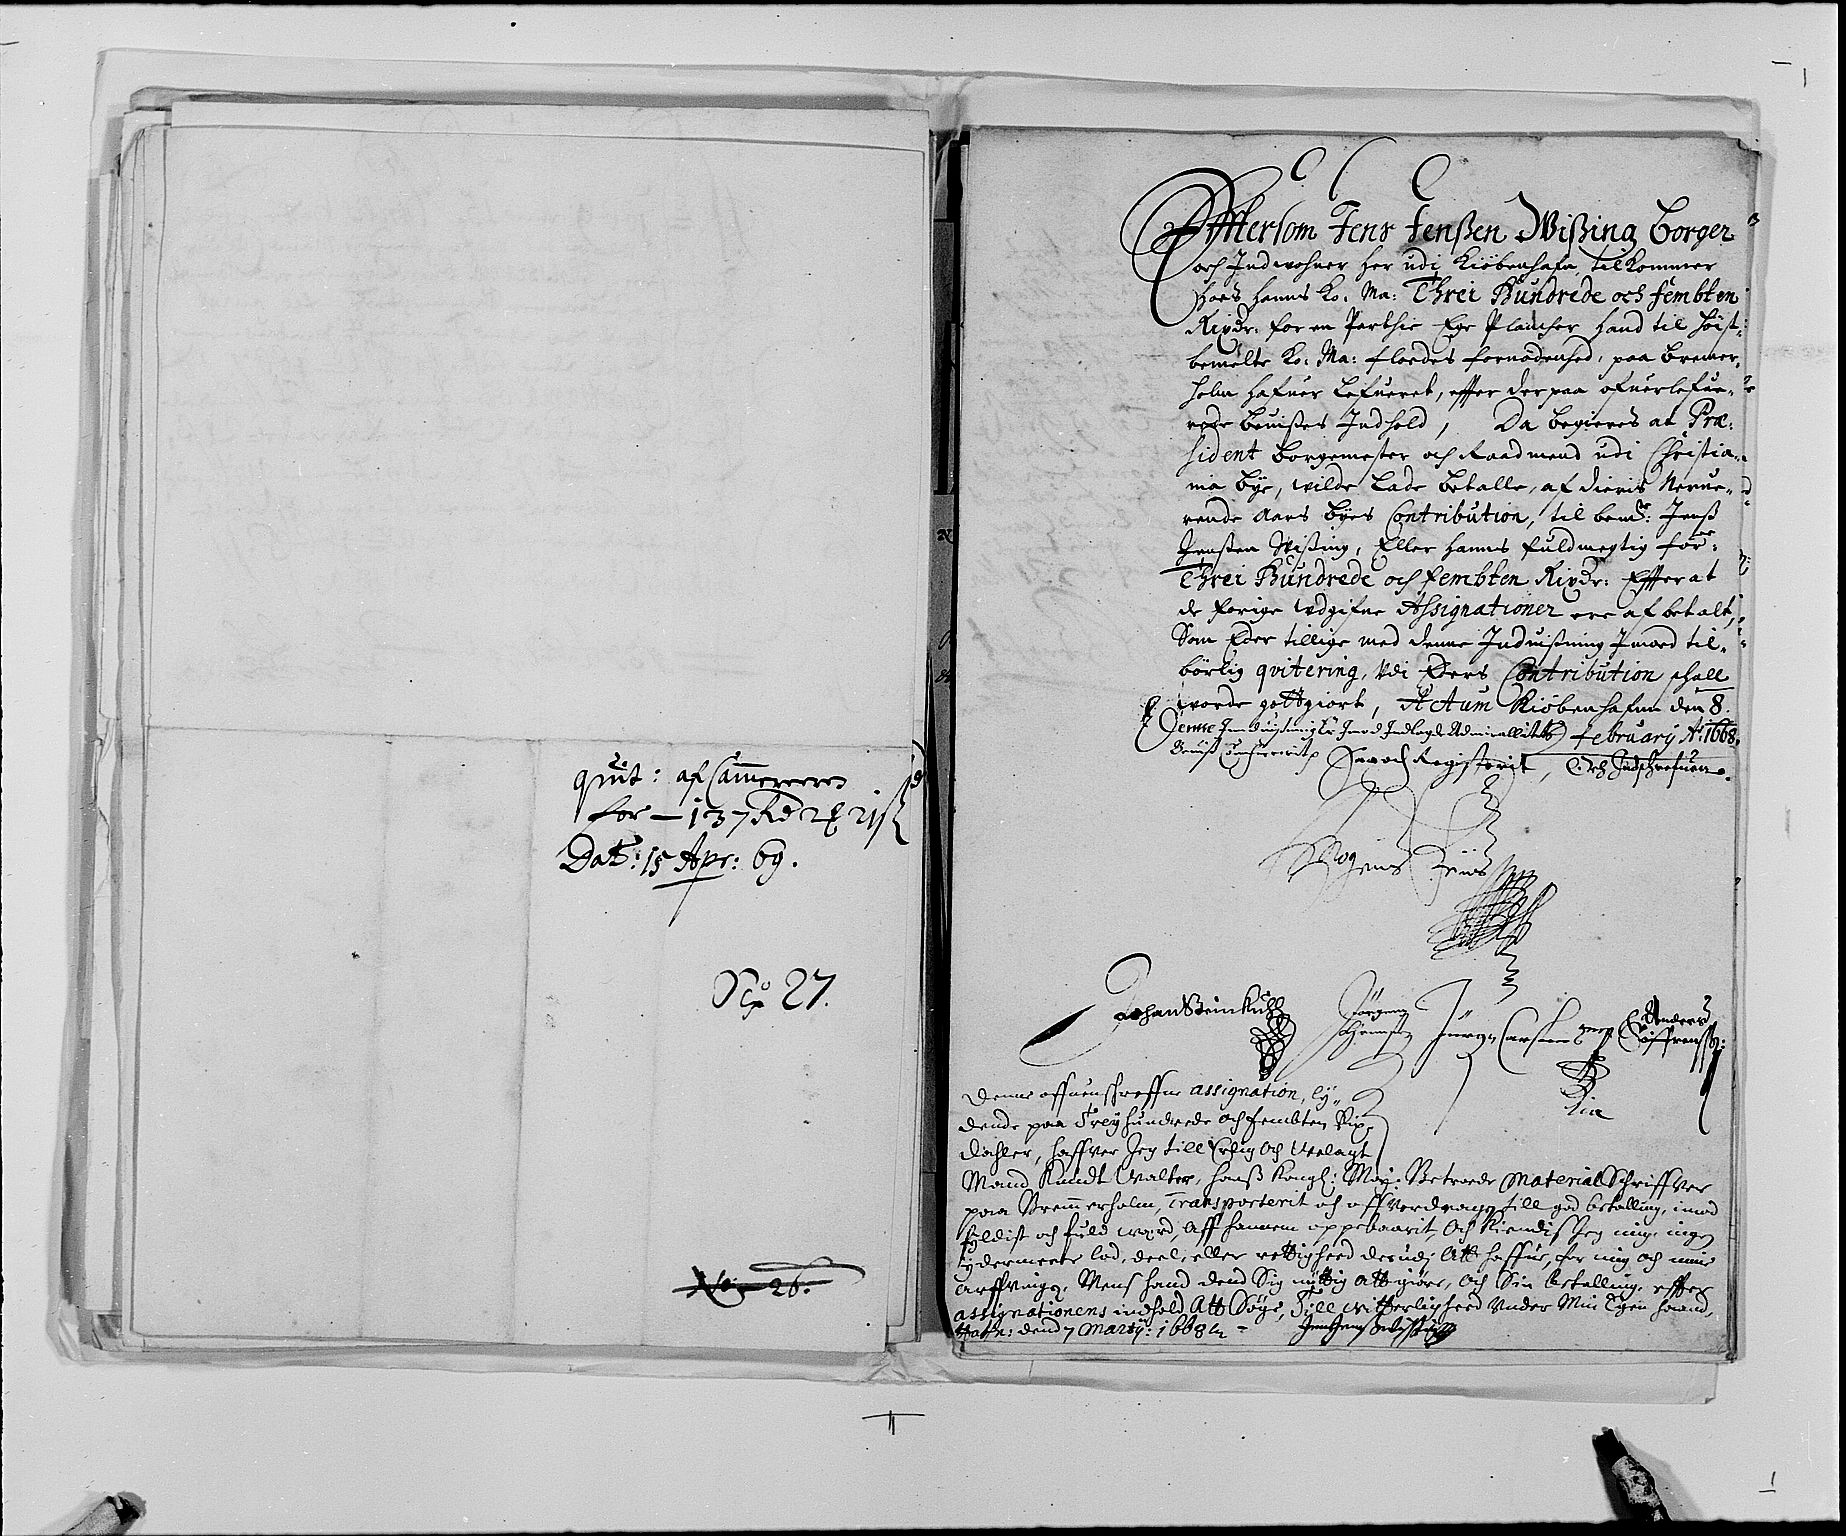 quit: af Cammereren
for — 137 Rd 2 ₰ 21 ß
Dat: 15 Apr: 69.
No 27.
No 26.
Effterſom Jens Jenßen Wißing Borger
och Indwohner her udj Kiöbenhafn, tilkommer
hoes hanns Ko: Ma: Threi Hundrede och fembten
Rixdr: for en Parthie Ege Plancker hand til höist-
bemelte Ko: Ma: floedes fornödenhed, paa Bremer-
holm hafuer lefueret, effter der paa ofuerlefue-
rede beuißes Indhold, Da begieres at Præ-
sident Borgemester och Raadmend udi Christia-
nia bye, wilde lade betalle, af dieris Nerue-
rende Aars byes Contribution, til bemte: Jenß
Jenßen Wißing, Eller hanns fuldmegtig for:ne
Threi Hundrede och fembten Rixdr: Effter at
de forige udgifne Assignationer ere af betalt,
Som Eder tillige med denne Induißning Imod til-
börlig qvitering, udi Eders Contribution schall
worde gottgiort, Actum Kiöbenhafn den 8.
February Ao: 1668.
Denne Induißning er Imod Indlagde Admirallitets
beuiß
Saa och Registerit, Och Indschrefuen.
Mogens Friis
Johan Steinkuhl
Jörgen
Anders
Söffrenß:
Denne offuenschreffne assignation, ly-
dende paa Trey hundrede och fembten Rix-
dahler, haffver Jeg till Erlig och Welagt
Mand Knudt Walter, Hanß Kongl: May: Betroede Material Schriffver
paa Bremmerholm, Transporterit och offverdragen till god betalling, imod
fyldist och fuld wærd, aff hannem oppebaarit, Och kiendis Jeg mig ingen
ydermeere lod, deel, eller rettigheed derudj Att haffue, for mig och mine
arffvinger, Mens hand dend Sig nyttig att giöre, och Sin betalling, effter
assignationens indhold Att Söge, Till witterligheed under Min Egen haand,
Hafn: dend 7 Martij: 1668
Jens Jenß Wißing